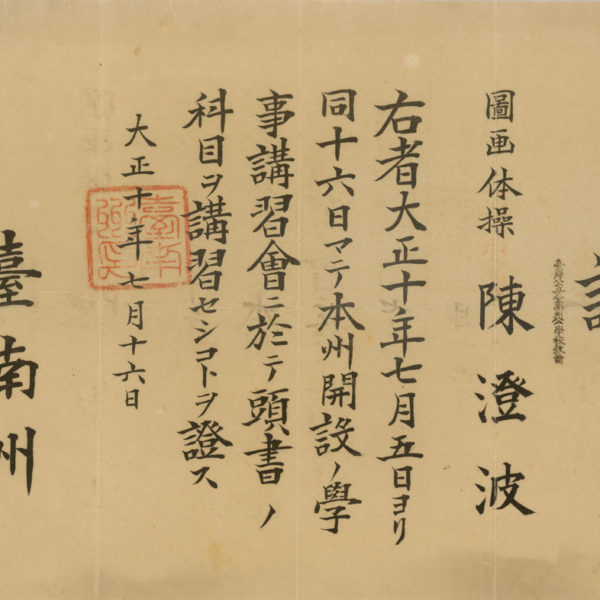 圖画体操
陳澄波
右者大正十年七月五日ヨリ
同十六日マテ本州開設ノ學
事講習會ニ於テ頭書ノ
科目ヲ講習セシコトヲ證ス
大正十年七月十六日
臺南州